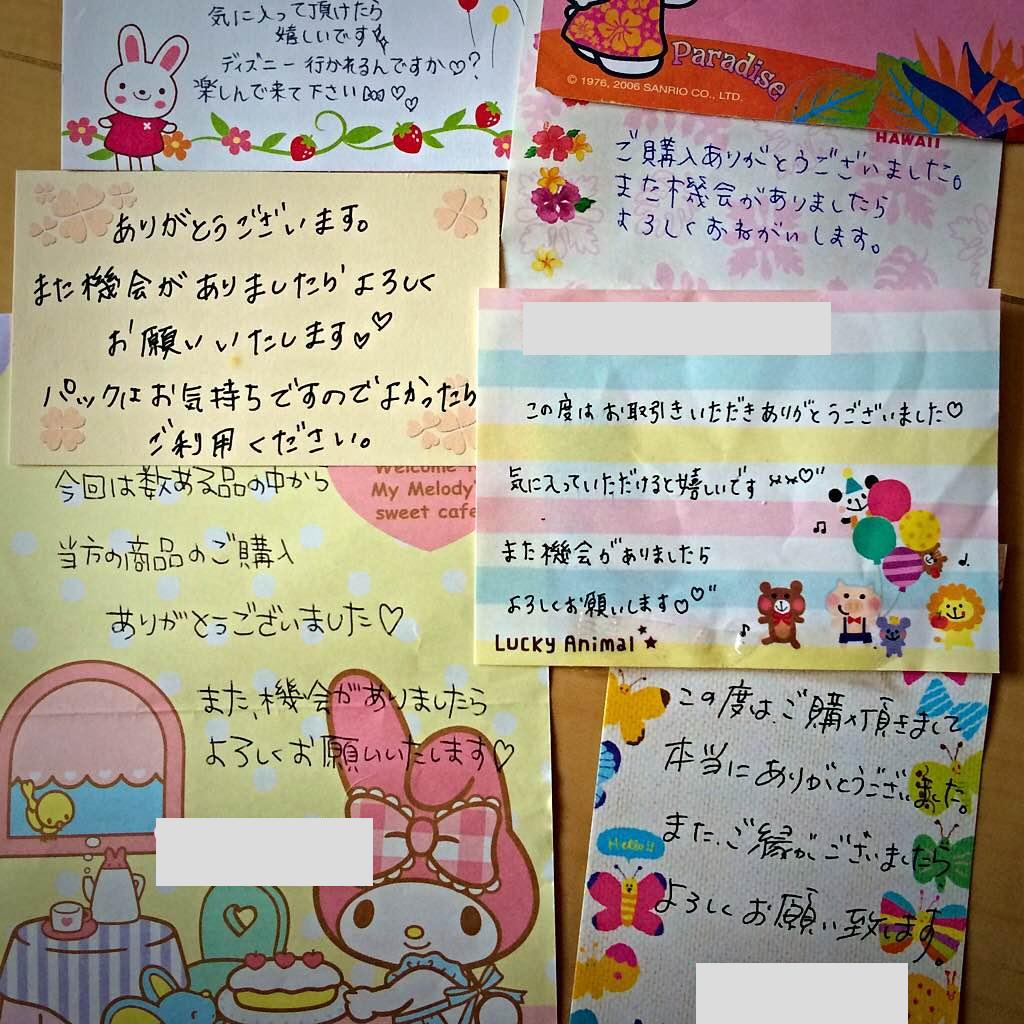 気に入って頂けたら
嬉しいです
ディズニー行かれるんですか♡?
楽しんで来て下さい♡♡
Paradise
© 1976, 2006 SANRIO CO., LTD.
HAWAII
ご購入ありがとうございました。
また機会がありましたら
よろしくおねがいします。
ありがとうございます。
また機会がありましたらよろしく
お願いいたします♡♡
パックはお気持ちですのでよかったら
ご利用ください。
この度はお取引きいただきありがとうございました♡
気に入っていただけると嬉しいです♡
また機会がありましたら
よろしくお願いします♡♡
Lucky Animal
Welcome
My Melody's
sweet cafe
今回は数ある品の中から
当方の商品のご購入
ありがとうございました♡
また、機会がありましたら
よろしくお願いいたします♡
この度は、ご購入頂きまして
本当にありがとうございました。
また、ご縁がございましたら
Hello!!
よろしくお願い致します。